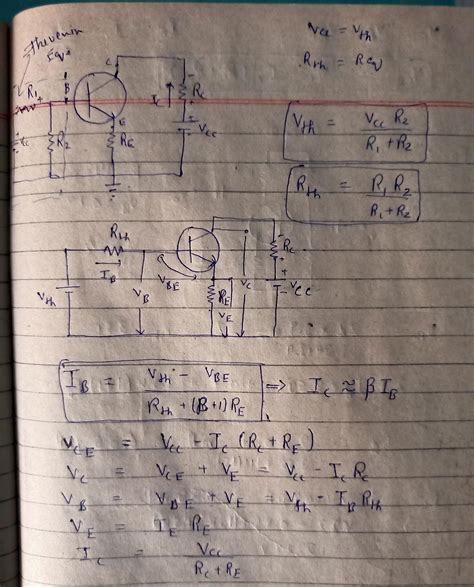 Vcc = Vth
Rth = Req
Thevenin
Eqv
R1
B
C
E
R2
RE
Ic
Rc
Vcc
Vth = Vcc R2 / R1 + R2
Rth = R1 R2 / R1 + R2
Rth
IB
Vth
VB
VBE
RE
VE
Vc
Rc
Vcc
IB = Vth - VBE / Rth + (β+1) RE ⇒ Ic ≈ β IB
VCE = Vcc - Ic (Rc + RE)
Vc = VCE + VE = Vcc - Ic Rc
VB = VBE + VE = Vth - IB Rth
VE = IE RE
Ic = Vcc / Rc + RE